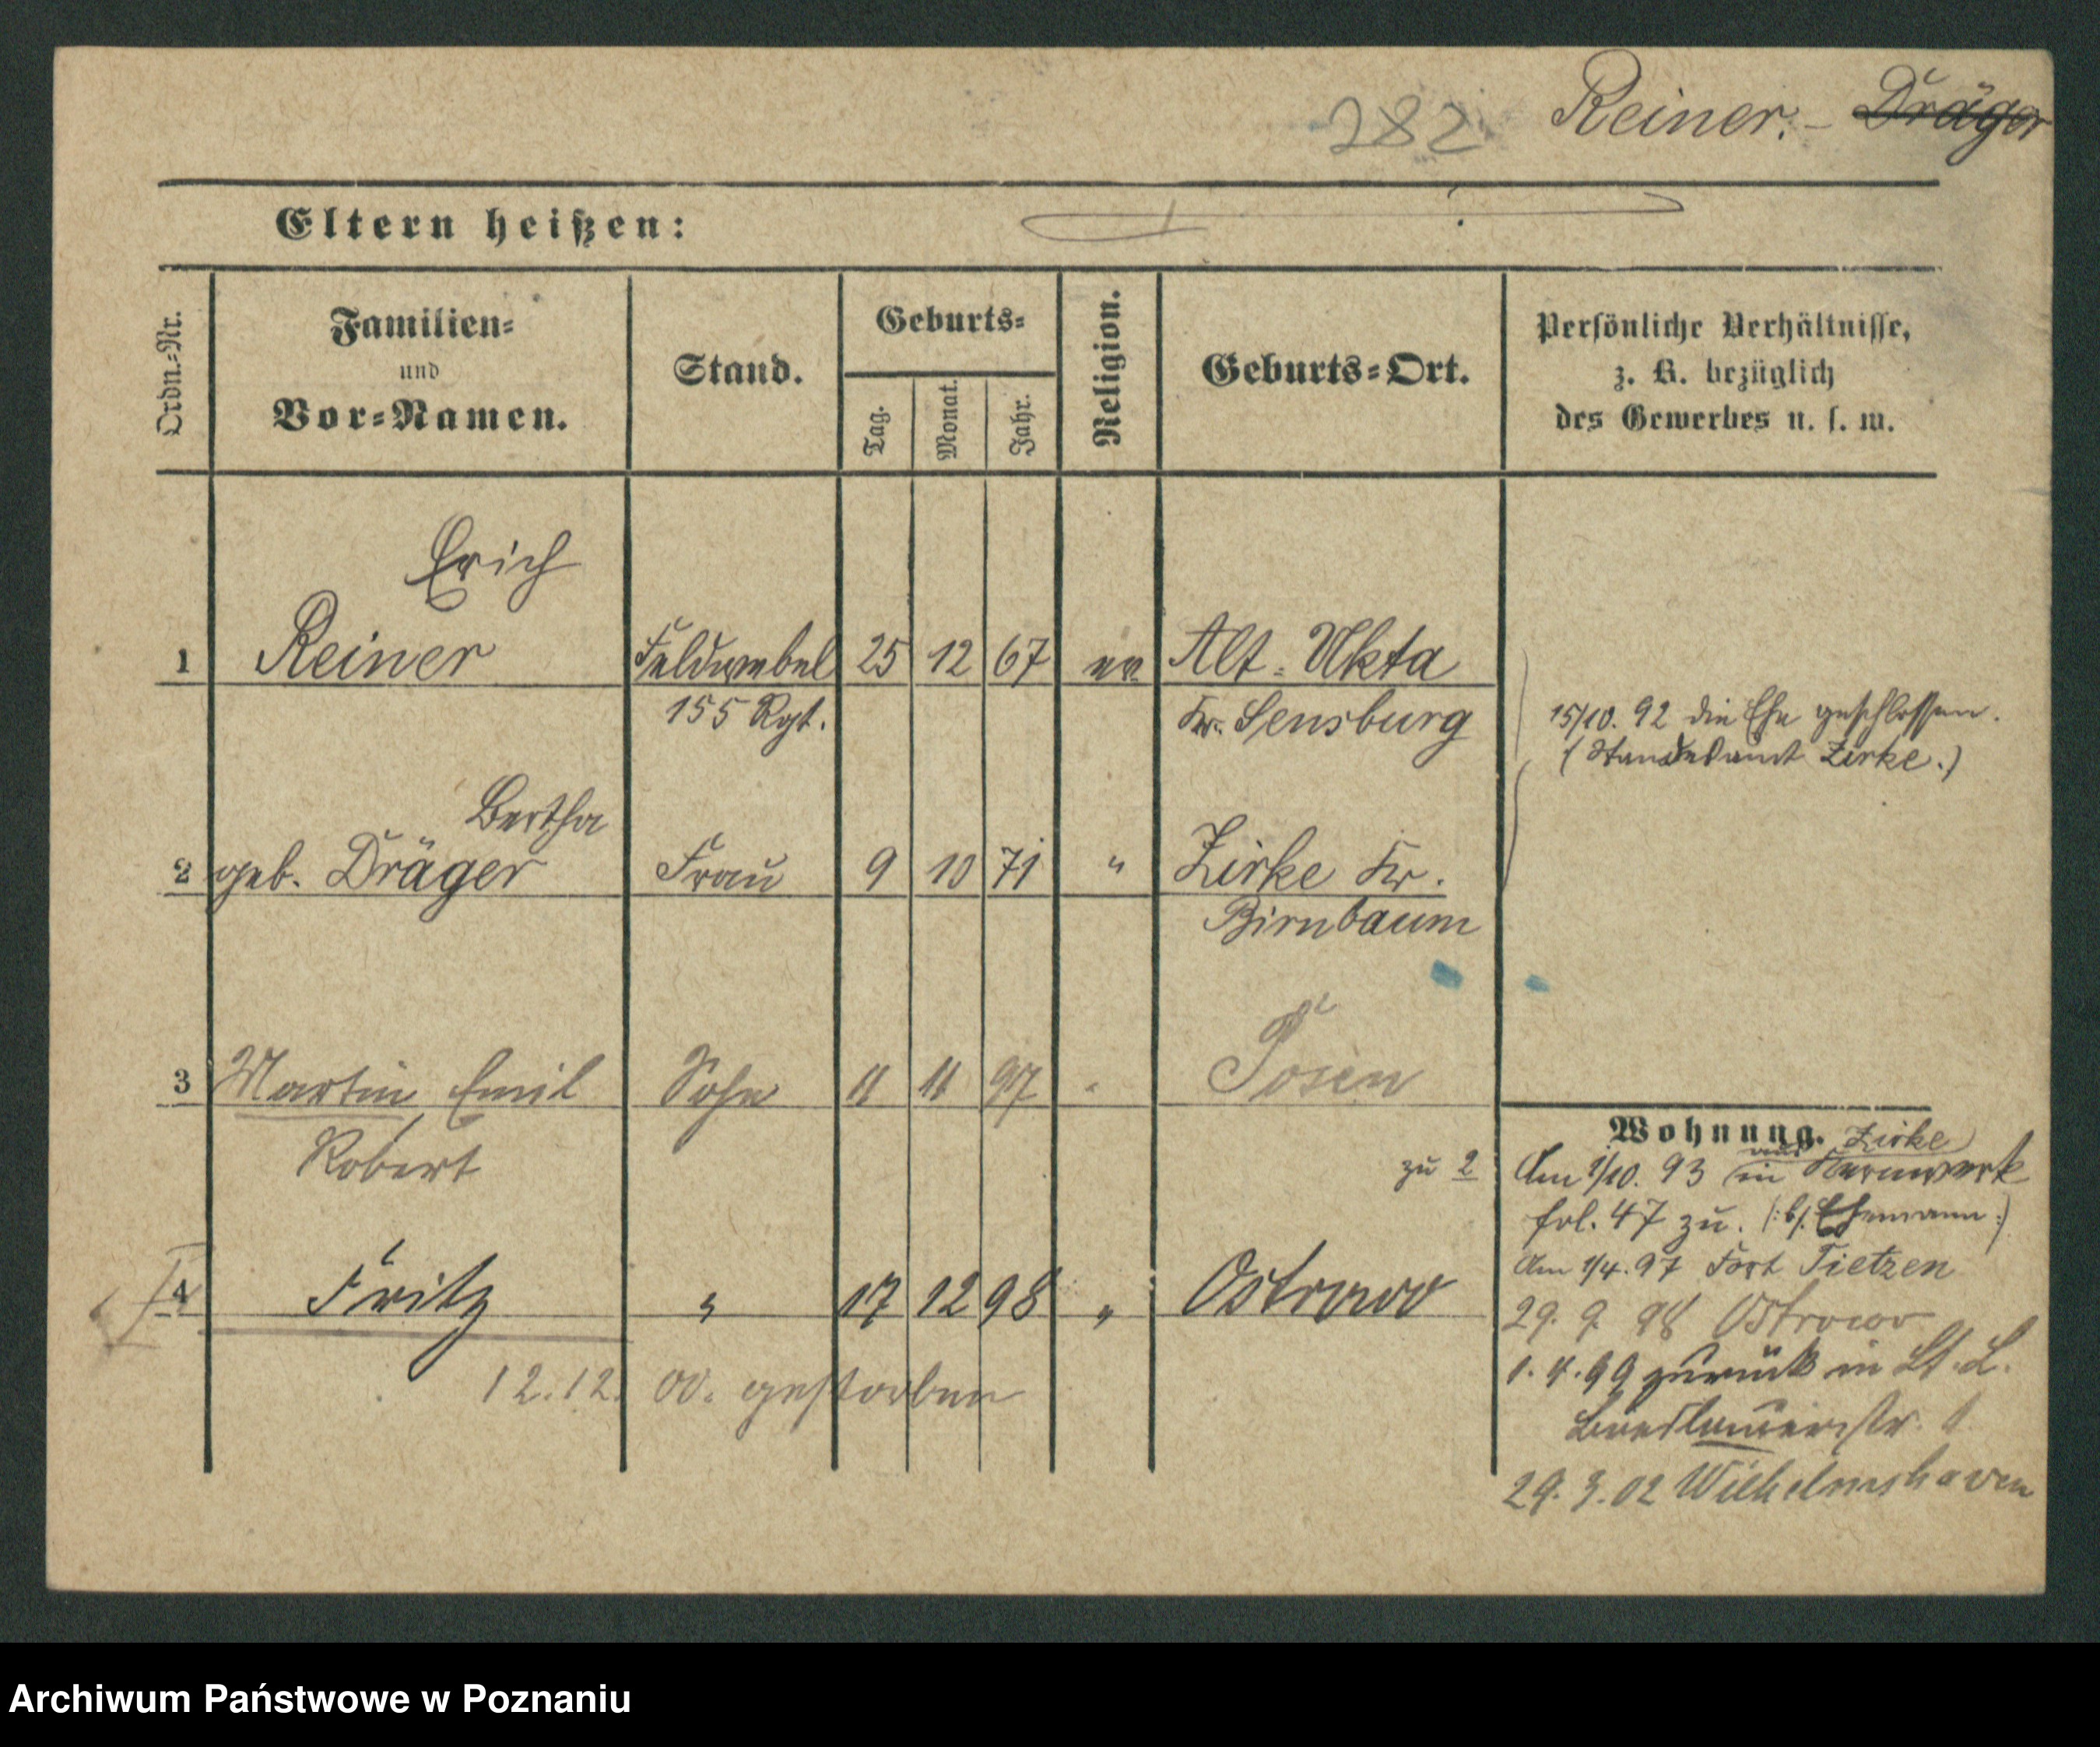 282 Reiner. - Dräger
Eltern heißen:
Ordn.=Nr.
Familien=
und
Vor=Namen.
Stand.
Geburts=
Tag.
Monat.
Jahr.
Religion.
Geburts=Ort.
Persönliche Verhältnisse,
z. B. bezüglich
des Gewerbes u. s. w.
Erich
1 Reiner Feldwebel 25 12 67 ev Alt=Ukta
155 Rgt. Kr. Sensburg
15/10. 92 die Ehe geschlossen.
(Standesamt Zirke.)
Bertha
2 geb. Dräger Frau 9 10 71 " Zirke Kr.
Birnbaum
3 Martin Emil Sohn 11 11 97 " Posen
Robert
4 Fritz " 17 12 98 " Ostrowo
12.12. 00. gestorben
Wohnung.
aus Zirke
zu 2 Am 1/10. 93 in Kernwerk
fol. 47 zu. (:b/. Ehemann:)
Am 1/4. 97 Fort Tietzen
29. 9 98 Ostrowo
1. 4. 99 zurück in St. L.
Breslauerstr. 1
29. 3. 02 Wilhelmshaven
Archiwum Państwowe w Poznaniu